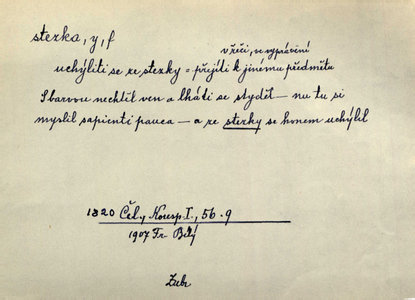 stezka, y, f
v řeči, ve vyprávění
uchýliti se ze stezky = přejíti k jinému předmětu
S barvou nechtěl ven a lháti se styděl — nu tu si
myslil sapienti pauca — a ze stezky se honem uchýlil
1820 Čel., Koresp. I., 56. 9
1907 Fr. Bílý
Zubr